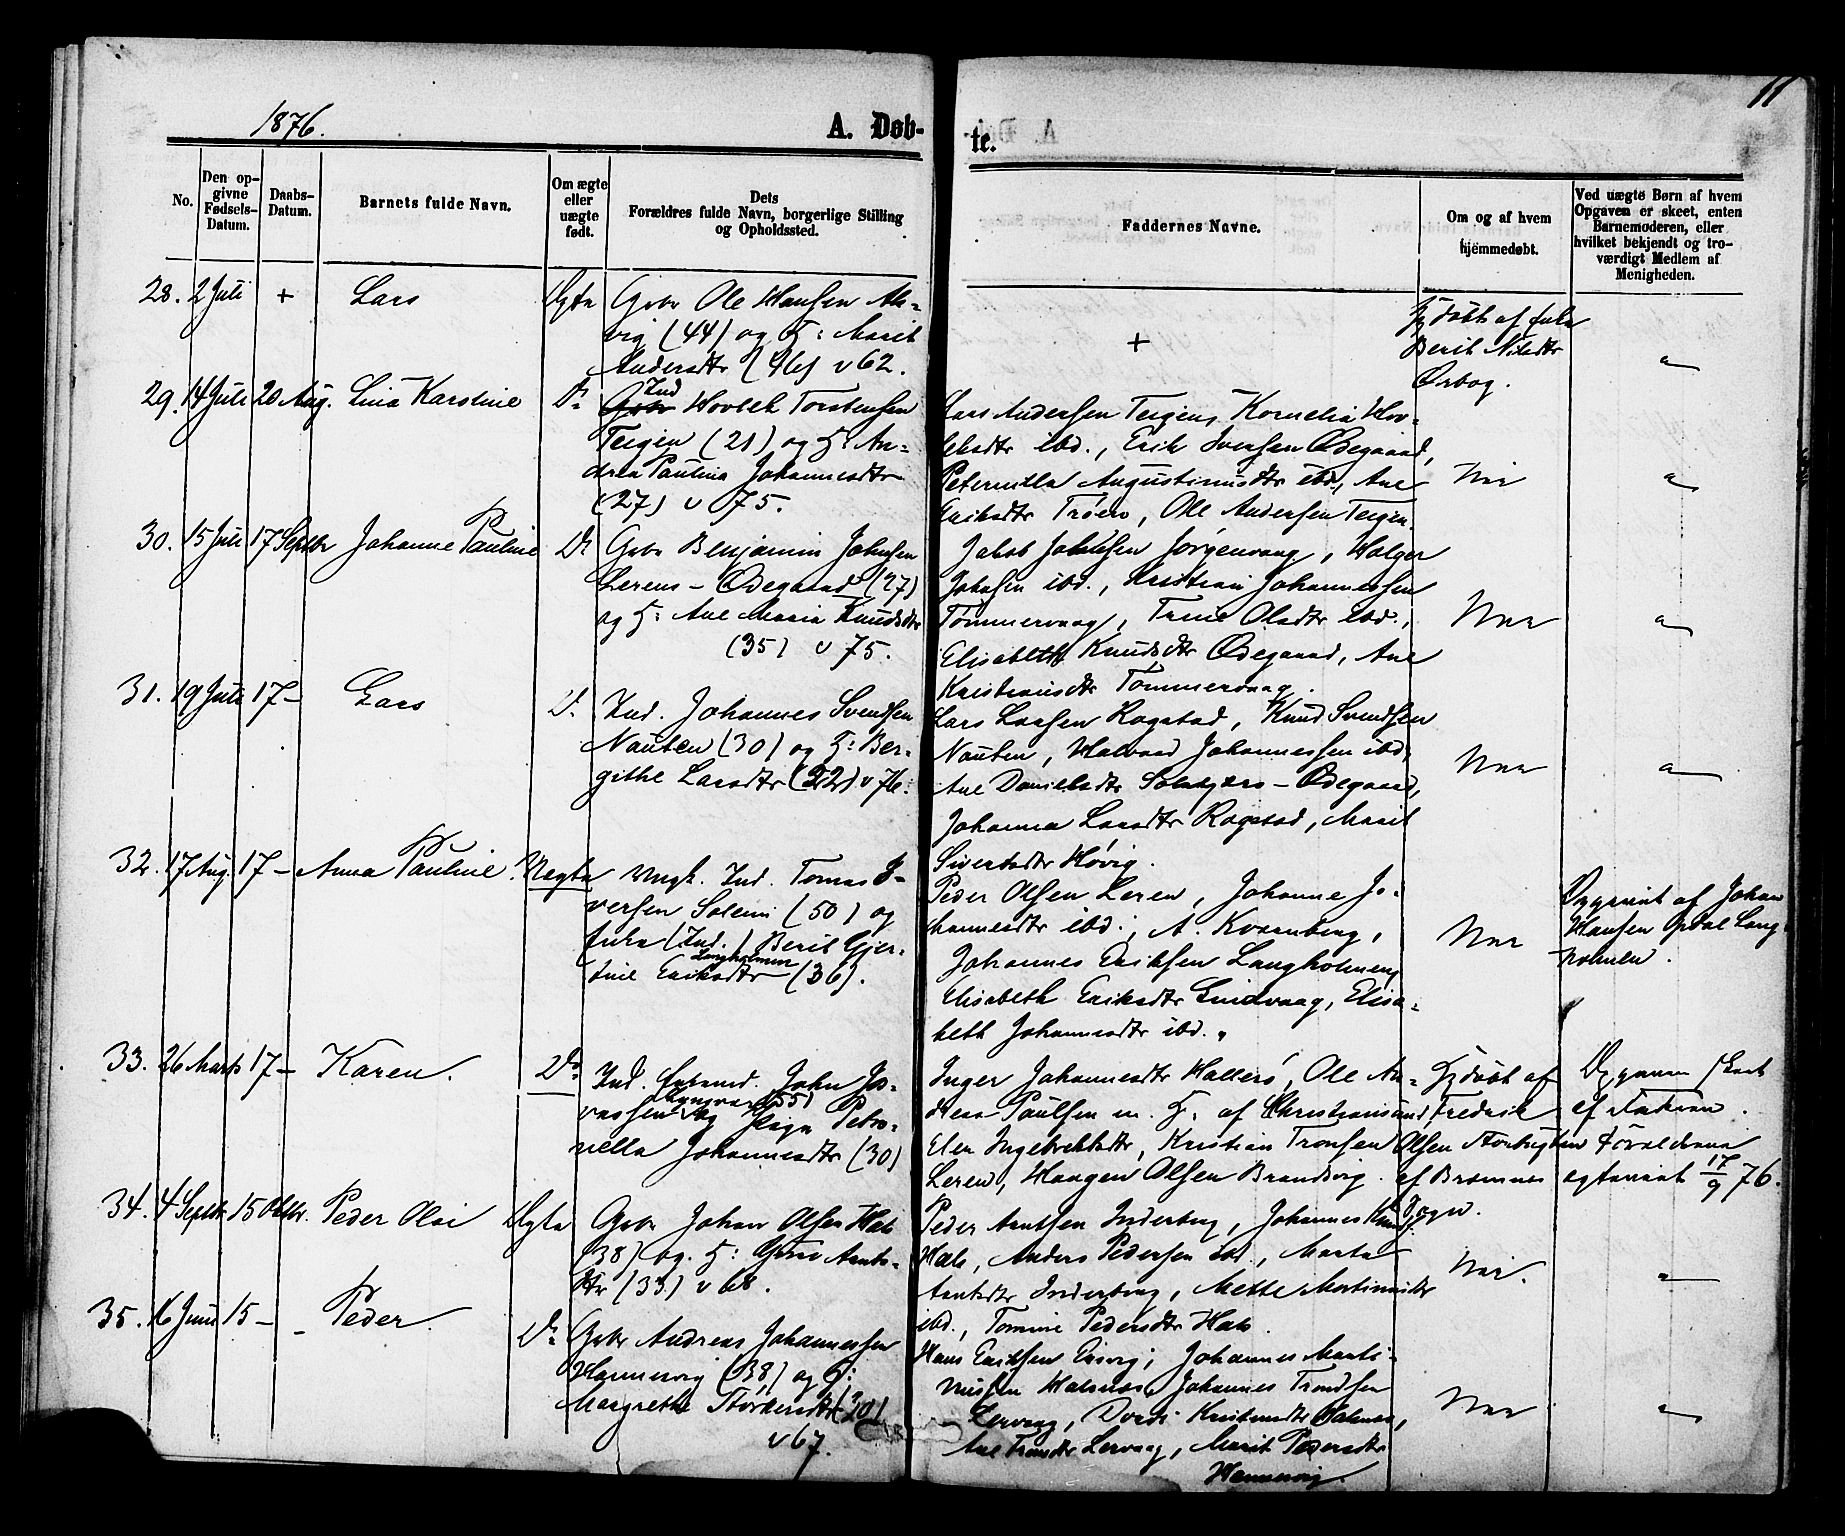 1876.
11
A. Døb-
te.
No.
Den op-
givne
Fødsels-
Datum.
Daabs-
Datum.
Barnets fulde Navn.
Om ægte
eller
uægte
født.
Dets
Forældres fulde Navn, borgerlige Stilling
og Opholdssted.
Faddernes Navne.
Om og af hvem
hjemmedøbt.
Ved uægte Børn af hvem
Opgaven er skeet, enten
Barnemoderen, eller
hvilket bekjendt og tro-
værdigt Medlem af
Menigheden.
28. 2 Juli + Lars Ægte Gbr Ole Hansen
vig (44) og H: Marit
Andersdtr (46) v 62.
+
Hjdøbt af
Berit Nilsdtr
29. 14 Juli 20 Aug. Lina Karoline Do Ind Hovlek Torstensen
Teigen (21) og H: An-
drea Paulina Johannesdtr
(27) v 75.
Lars Andersen Teigen, Kornelia Hov-
leksdtr ibd., Erik Iversen Ødegaard,
Peternilla Augustinusdtr ibd., Ane
Eriksdtr Trøen, Ole Andersen Teigen.
Nei
30. 15 Juli 17 Septbr Johanne Pauline Do Gbr Benjamin Johnsen
Lerens-Ødegaard (27)
og H: Ane Maria Knudsdtr
(35) v 75.
Jakob Jakobsen Jørgenvaag, Holger
Jakobsen ibd., Kristian Johannessen
Tømmervaag, Trine Olsdtr ibd.,
Elisabeth Knudsdtr Ødegaard, Ane
Kristiansdtr Tømmervaag.
Nei
31. 19 Juli 17 - Lars Do Ind. Johannes Svendsen
Nausten (30) og H: Ber-
githe Larsdtr (22) v 76.
Lars Larsen Rogstad, Knud Svendsen
Nausten, Halvard Johannessen ibd.,
Ane Danielsdtr Solskjærs-Ødegaard,
Johanna Larsdtr Rogstad, Marit
Sivertsdtr Høvig.
Nei
32. 17 Aug. 17 - Anna Pauline. Uægte Ungk. Ind. Tomas I-
versen Solem (50) og
Enke (Ind.) Berit Gjer-
tine Eriksdtr Langholmen (36).
Peder Olsen Leren, Johanne Jo-
hannesdtr ibd., A. Kvernberg,
Johannes Eriksen Langholmen,
Elisabeth Eriksdtr Grindvaag, Elisa-
beth Johannesdtr ibd.
Nei
Opgivet af Johan
Hansen Opdal Lang-
holmen.
33. 26 Marts 17 - Karen. Do Ind. John Jo-
(55)
og Pige Petro-
nella Johannesdtr (30)
Inger Johannesdtr Hallerø, Ole An-
dreas Paulsen m. H: af Christiansund
Elen Ingebrektsdtr, Kristian Tronsen
Leren, Haagen Olsen Brandsvig.
Hjdøbt af
Fredrik
Olsen
af Bremnes
Sogn.
Opgaven skeet
af Faderen.
Forældrene
ægteviet 17/9 76.
34. 4 Septbr. 15 Oktbr. Peder Olai Ægte Gbr Johan Olsen Hals
(38) og H: Guro Arnts-
dtr (33) v 68.
Peder Arntsen Inderberg, Johannes
Hals, Anders Pedersen ibd., Marta
Arntsdtr Inderberg, Mette Martinusdtr
ibd., Tomine Pedersdtr Hals.
Nei.
35. 16 Juni 15 - Peder. Do Gbr Andreas Johannessen
Hannevig (38) og H:
Margrethe Størkersdtr (30)
v 67.
Hans Eriksen Eisvig, Johannes Marti-
nussen Halsnes, Johannes Trondsen
Lervaag, Dordi Kristensdtr Halsnes,
Ane Tronsdtr Lervaag, Marit Pedersdtr
Hannevig.
Nei